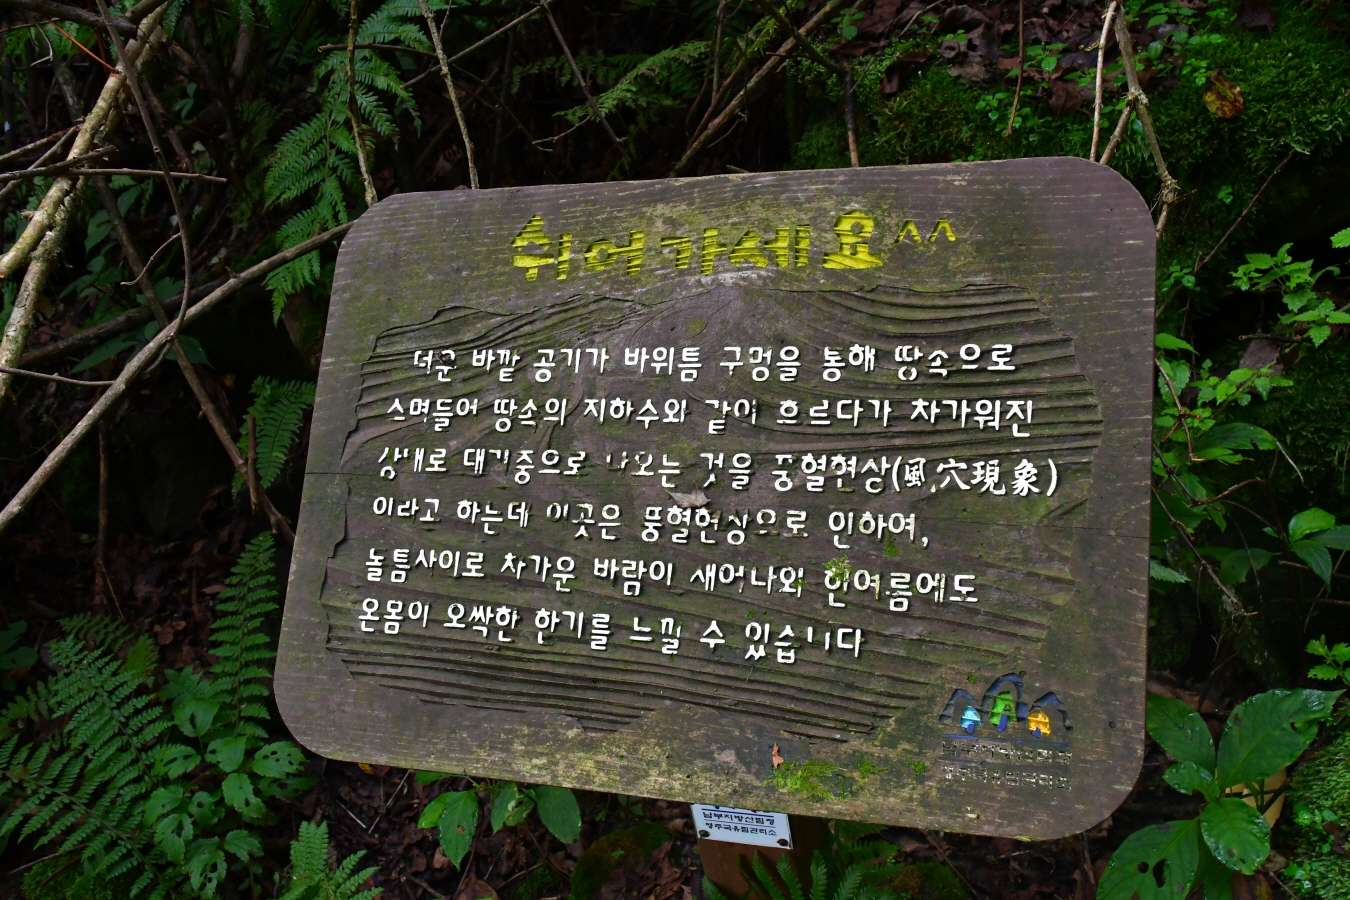 쉬어가세요^^
더운 바깥 공기가 바위틈 구멍을 통해 땅속으로
스며들어 땅속의 지하수와 같이 흐르다가 차가워진
상태로 대기중으로 나오는 것을 풍혈현상(風穴現象)
이라고 하는데 이곳은 풍혈현상으로 인하여,
돌틈사이로 차가운 바람이 새어나와 한여름에도
온몸이 오싹한 한기를 느낄 수 있습니다
남부지방산림청
영주국유림관리소
남부지방산림청
영주국유림관리소